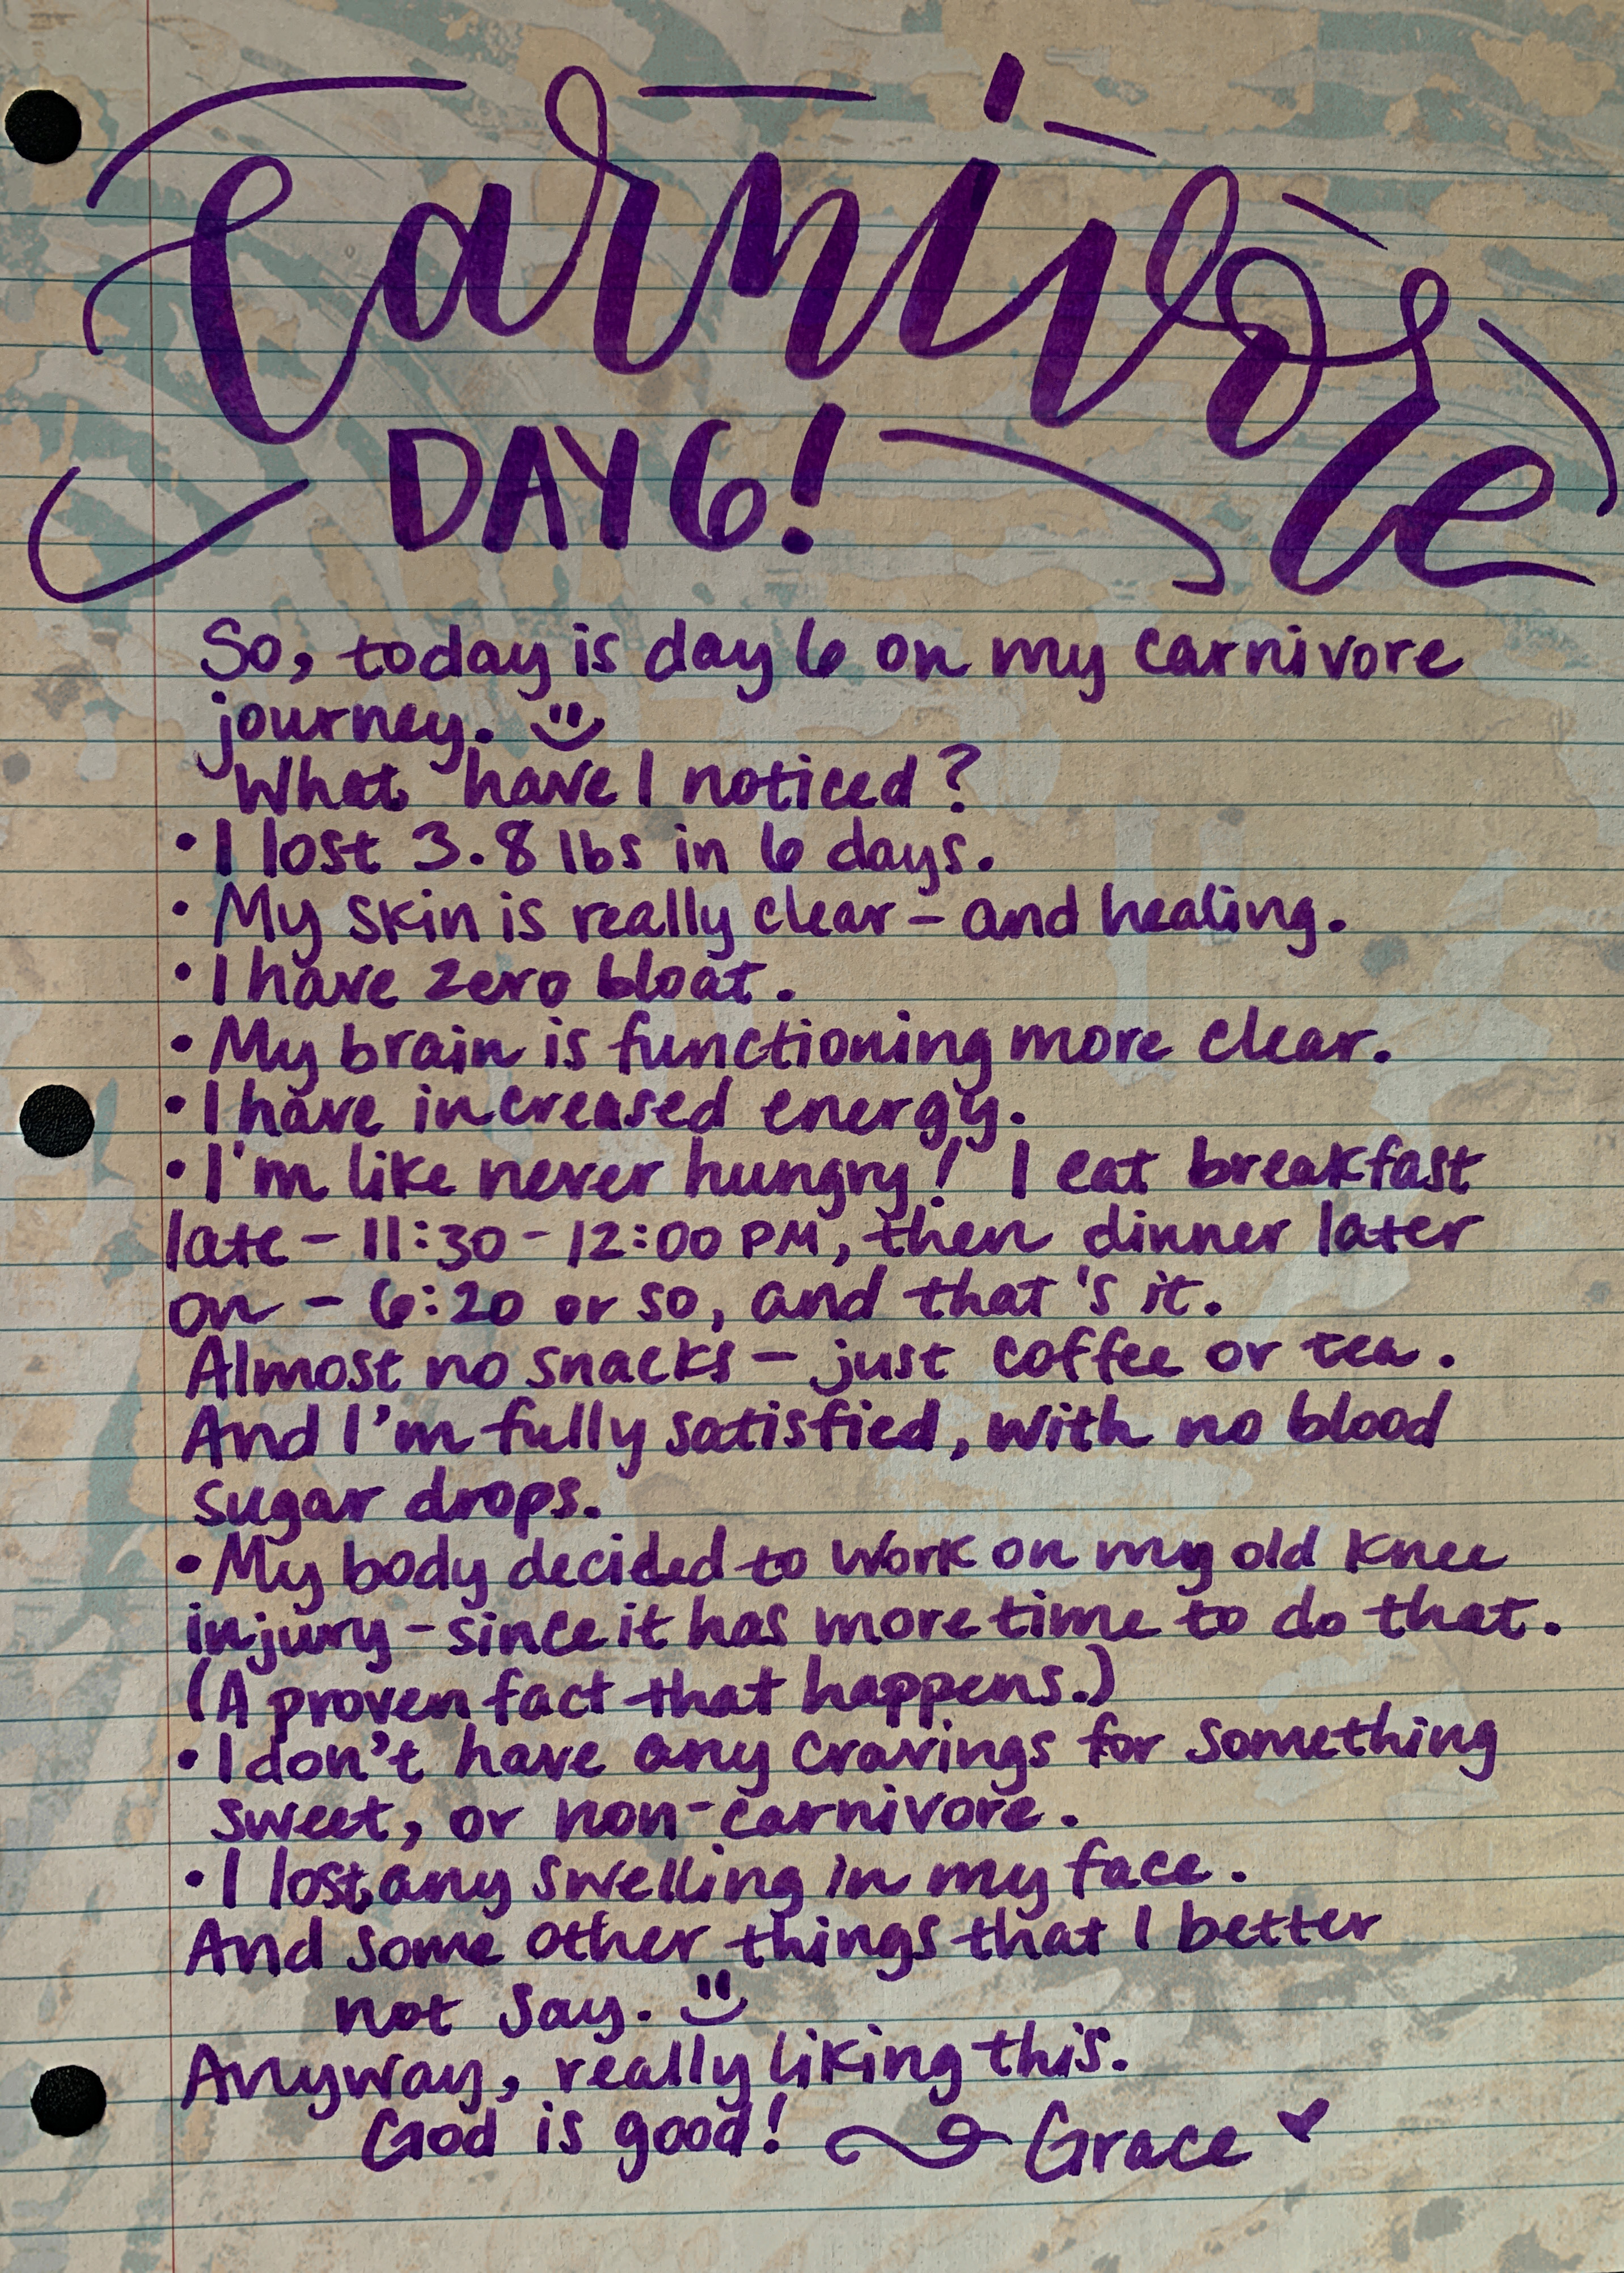 Carnivore
DAY 6!
So, today is day 6 on my carnivore
journey. :)
What have I noticed?
• I lost 3.8 lbs in 6 days.
• My skin is really clear - and healing.
• I have zero bloat.
• My brain is functioning more clear.
• I have increased energy.
• I'm like never hungry! I eat breakfast
late - 11:30 - 12:00 PM, then dinner later
on - 6:20 or so, and that's it.
Almost no snacks - just coffee or tea.
And I'm fully satisfied, with no blood
sugar drops.
• My body decided to work on my old knee
injury - since it has more time to do that.
(A proven fact that happens.)
• I don't have any cravings for something
sweet, or non-carnivore.
• I lost any swelling in my face.
And some other things that I better
not say. :)
Anyway, really liking this.
God is good! Grace ♥